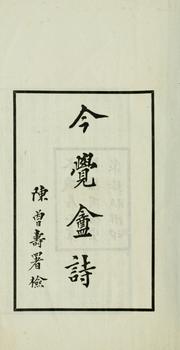 今覺盦詩
陳曾壽署檢